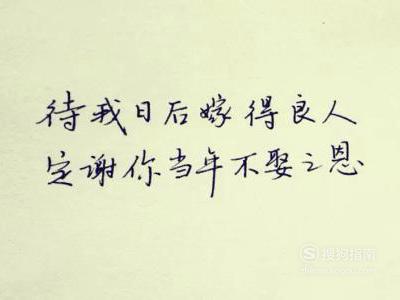 待我日后嫁得良人
定谢你当年不娶之恩
搜狗指南